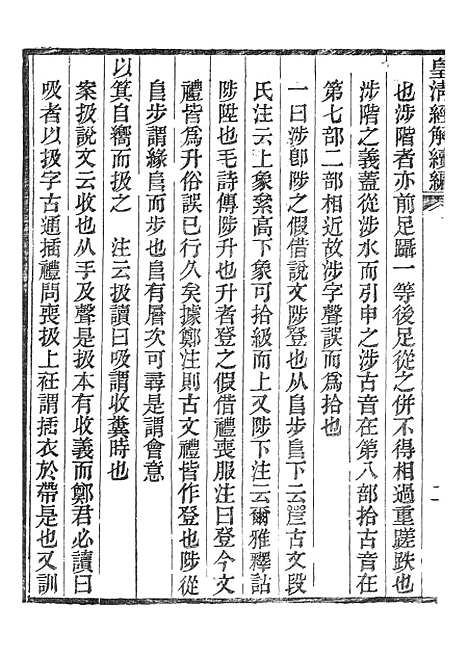 皇清經解續編
也涉階者亦前足躡一等後足從之併不得相過重蹉跌也
涉階之義蓋從涉水而引申之涉古音在第八部拾古音在
第七部二部相近故涉字聲誤而爲拾也
一曰涉卽陟之假借說文陟登也从𨸏步𨸏下云𨸏古文段
氏注云上象絫高下象可拾級而上又陟下注云爾雅釋詁
陟陞也毛詩傳陟升也升者登之假借禮喪服注曰登今文
禮皆爲升俗誤已行久矣據鄭注則古文禮皆作登也陟從
𨸏步謂緣𨸏而步也𨸏有層次可尋是謂會意
以箕自嚮而扱之　注云扱讀曰吸謂收糞時也
案扱說文云收也从手及聲是扱本有收義而鄭君必讀曰
吸者以扱字古通插禮問喪扱上衽謂插衣於帶是也又訓
二